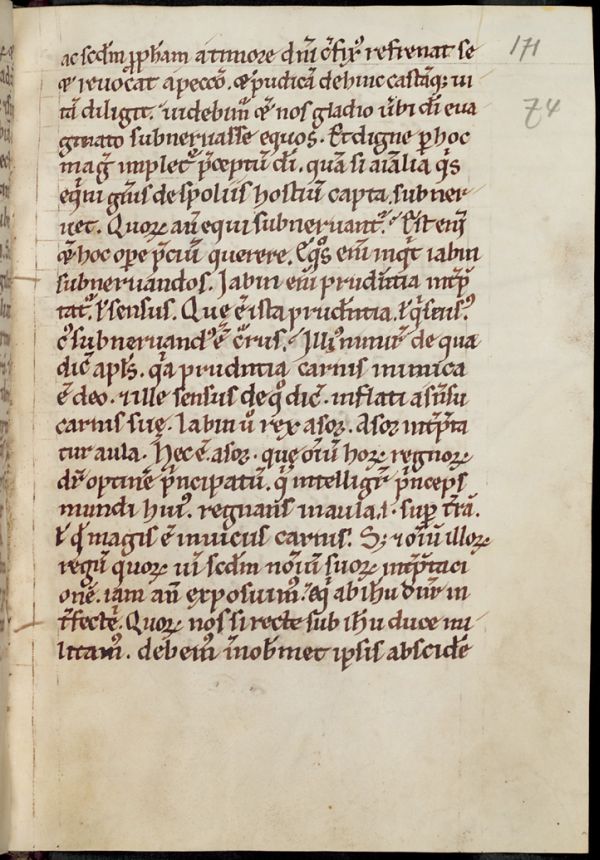 171
74
ac scd̄m ꝓph̄am a timore dn̄i ꝯfixꝰ refrenat se
⁊ reuocat a pecc̄o. ⁊ pudicā dehinc castāq; ui
tā diligit. uidebimꝰ ⁊ nos gladio ūbi dī eua
ginato subneruasse equos. Et digne ꝑ hoc
magꝭ implet᷑ p̄ceptū dī. quā si aīalia q̄s
eq̄ni gn̄is de spoliis hostiū capta. subner
uet. Quoꝝ aū equi subneruant᷑. Est eni᷑
⁊ hoc oꝑe p̄ciū querere. Eq̊s eni᷑ inqt iabin
subneruandos. Iabin eni᷑ prudn̄tia int̄p̄
tat᷑. ł sensus. Que ē ista prudn̄tia. ł q̇s sensꝰ.
cꝰ subneruandꝰ ē c̄rus. Illiꝰ nimiꝝ de qua
dic̄ apl̄s. q̄a prudn̄tia carnis inimica
ē deo. ⁊ ille sensus de q̊ dic̄. inflati a sn̄su
carnis suę. Iabin ů rex asoꝝ. Asoꝝ int̄p̄ta
tur aula. Hec ē asoꝝ. que oīum hoꝝ regnoꝝ
dr̄ optinē p̄ncipatū. q̄ intelligit᷑ p̄nceps
mundi huiꝰ. regnans in aula. i. suꝑ t̄rā.
ł q̇ magis ē inuicus carnis. S; ⁊ oīum illoꝝ
regū quoꝝ ui᷑ scd̄m noīum suoꝝ int̄p̄taci
onē. iam aū exposuimꝰ. eq̇ ab ih̄u dūr in
t̄fectę. Quoꝝ nos si recte sub ih̄u duce mi
litamꝰ. debemꝰ in nob̄met ipsis abscidē